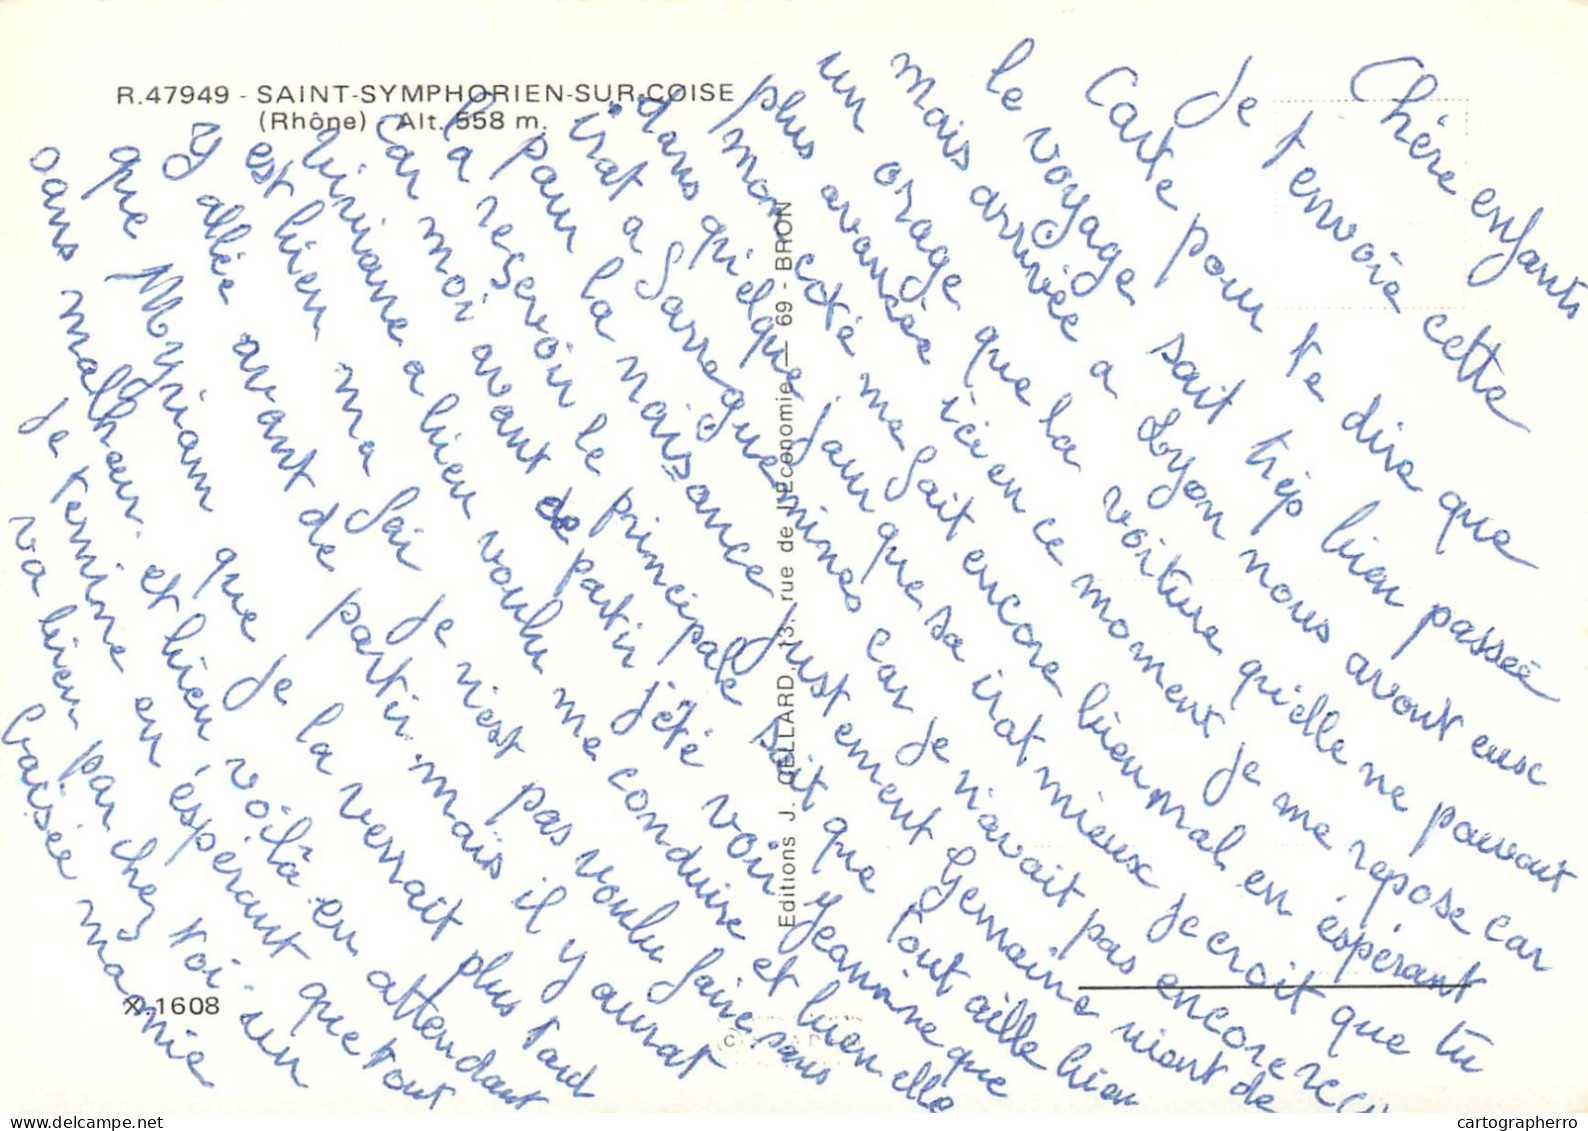 R.47949 - SAINT-SYMPHORIEN-SUR-COISE
(Rhône) Alt. 558 m.
Chère enfants
Je t'envoie cette
Carte pour te dire que
le voyage sait trés bien passeé
mais arrivée a Lyon nous avont eux
un orage que la voiture qu'elle ne pouvait
plus avancée ici en ce moment je me repose car
mon coté me fait encore bien mal en éspérant
dans quelque jour que sa irat mieux je croit que tu
irat a Sarreguemines car je n'avait pas encore reçu
pour la naissance justement Germaine vient de
la reçevoir le principale sait que tout aille bien
car moi avant de partir j'été voir Jeannine que
Viviane a bien voulu me conduire et bien elle
est bien ma foi je n'est pas voulu faire sans
y allée avant de partir mais il y aurat
que Myriam que je la verrait plus tard
sans malheur et bien voilà en attendant
je termine en éspérant que tout
va bien par chez toi - un
baisée mamie
Editions J. CELLARD, 13, rue de l'Economie - 69 - BRON
X.1608
cartographerro